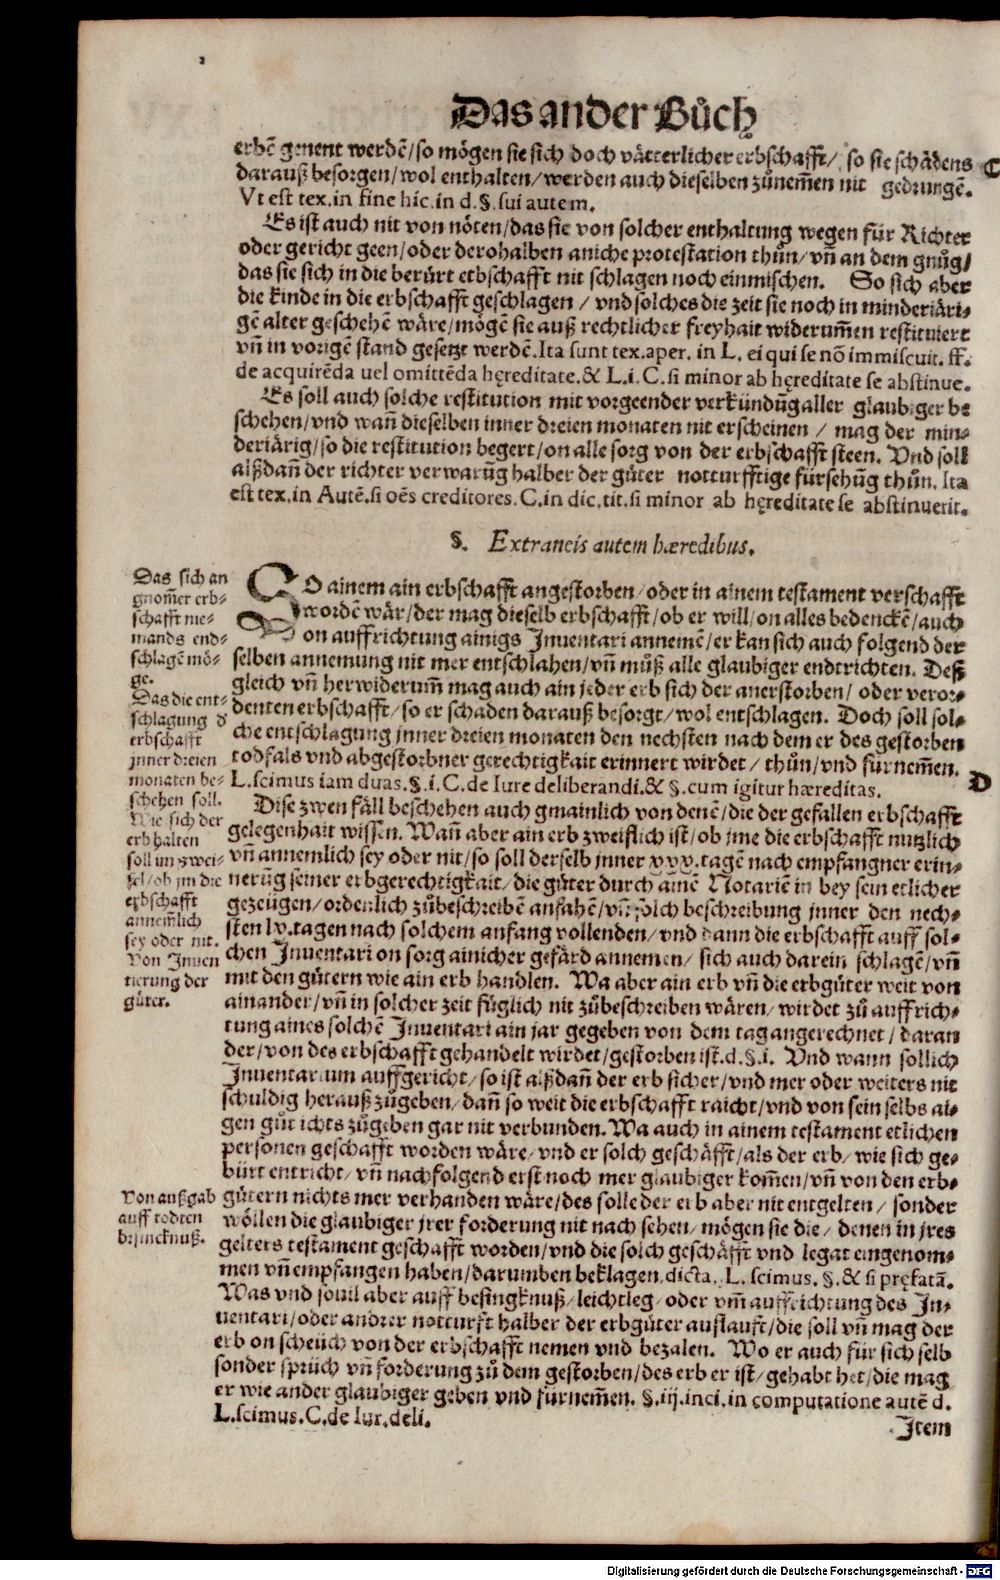 Das ander Bůch
erbē gnent werdē/so mögen sie sich doch vätterlicher erbschafft/ so sie schädens
C
darauß besorgen/wol enthalten/werden auch dieselben zůnem̄en nit gedrungē.
Vt est tex.in fine hic.in d.§.sui autem.
Es ist auch nit von nöten/das sie von solcher enthaltung wegen für Richter
oder gericht geen/oder derohalben aniche protestation thůn/vn̄ an dem gnůg/
das sie sich in die berürt erbschafft nit schlagen noch einmischen. So sich aber
die kinde in die erbschafft geschlagen / vnd solches die zeit sie noch in minderjäri-
gē alter geschehē wäre/mögē sie auß rechtlicher freyhait widerum̄en restituiert
vn̄ in vorigē stand gesetzt werdē.Ita sunt tex.aper. in L. ei qui se nō immiscuit. ff.
de acquirēda uel omittēda hęreditate.& L.i.C.si minor ab hęreditate se abstinue.
Es soll auch solche restitution mit vorgeender verkündūg aller glaubiger be
schehen/vnd wan̄ dieselben inner dreien monaten nit erscheinen / mag der min-
derjärig/so die restitution begert/on alle sorg von der erbschafft steen. Vnd soll
alßdan̄ der richter verwarūg halber der gůter notturfftige fürsehūg thůn. Ita
est tex.in Autē.si oēs creditores.C.in dic.tit.si minor ab hęreditate se abstinuerit.
§. Extraneis autem hæredibus.
Das sich an
gnom̄er erb-
schafft nie-
mands end-
schlagē mö-
ge.
Das die ent-
schlagung d̕
erbschafft
jnner dreien
monaten be-
schehen soll.
Wie sich der
erb halten
soll im zwei-
fel/ob jm die
erbschafft
annem̄lich
sey oder nit.
Von Inuen
tierung der
gůter.
SO ainem ain erbschafft angestorben/oder in ainem testament verschafft
wordē wär/der mag dieselb erbschafft/ob er will/on alles bedenckē/auch
on auffrichtung ainigs Inuentari annemē/er kan sich auch folgend der
selben annemung nit mer entschlahen/vn̄ můß alle glaubiger endtrichten. Deß
gleich vn̄ herwiderum̄ mag auch ain jeder erb sich der anerstorben/ oder veror-
denten erbschafft/so er schaden darauß besorgt/wol entschlagen. Doch soll sol-
che entschlagung jnner dreien monaten den nechsten nach dem er des gestorben
todfals vnd abgestorbner gerechtigkait erinnert wirdet/ thůn/vnd fürnem̄en.
L.scimus iam duas.§.i.C.de Iure deliberandi.& §.cum igitur hæreditas.
D
Dise zwen fäll beschehen auch gmainlich von denē/die der gefallen erbschafft
gelegenhait wissen. Wan̄ aber ain erb zweiflich ist/ob jme die erbschafft nutzlich
vn̄ annemlich sey oder nit/so soll derselb jnner xxx.tagē nach empfangner erin-
nerūg seiner erbgerechtigkait/die gůter durch ainē Notariē in bey sein etlicher
gezeügen/ordenlich zůbeschreibē anfahē/vn̄ solch beschreibung jnner den nech-
sten lx.tagen nach solchem anfang vollenden/vnd dann die erbschafft auff sol-
chen Inuentari on sorg ainicher gefärd annemen/ sich auch darein schlagē/vn̄
mit den gůtern wie ain erb handlen. Wa aber ain erb vn̄ die erbgüter weit von
ainander/vn̄ in solcher zeit füglich nit zůbeschreiben wären/wirdet zů auffrich-
tung aines solchē Inuentari ain jar gegeben von dem tag angerechnet/daran
der/von des erbschafft gehandelt wirdet/gestorben ist.d.§.i. Vnd wann sollich
Inuentarium auffgericht/so ist alßdan̄ der erb sicher/vnd mer oder weiters nit
schuldig herauß zůgeben/dan̄ so weit die erbschafft raicht/vnd von sein selbs ai-
gen gůt ichts zůgeben gar nit verbunden. Wa auch in ainem testament etlichen
personen geschafft worden wäre/vnd er solch geschäfft/als der erb/wie sich ge-
bürt entricht/vn̄ nachfolgend erst noch mer glaubiger kom̄en/vn̄ von den erb-
Von außgab
auff todten
besincknuß.
gütern nichts mer verhanden wäre/des solle der erb aber nit entgelten/ sonder
wöllen die glaubiger jrer forderung nit nach sehen/mögen sie die/ denen in jres
gelters testament geschafft worden/vnd die solch geschäfft vnd legat eingenom-
men vn̄ empfangen haben/darumben beklagen.dicta. L. scimus. §.& si pręfatā.
Was vnd souil aber auff besingknuß/leichtleg/oder vm̄ auffrichtung des In-
uentari/oder andrer notturft halber der erbgüter auflaufft/die soll vn̄ mag der
erb on scheüch von der erbschafft nemen vnd bezalen. Wo er auch für sich selb
sonder sprüch vn̄ forderung zů dem gestorben/des erb er ist/gehabt het/die mag
er wie ander glaubiger geben vnd fürnem̄en. §.iij.inci.in computatione autē d.
L.scimus.C.de Iur.deli.
Item
Digitalisierung gefördert durch die Deutsche Forschungsgemeinschaft - DFG